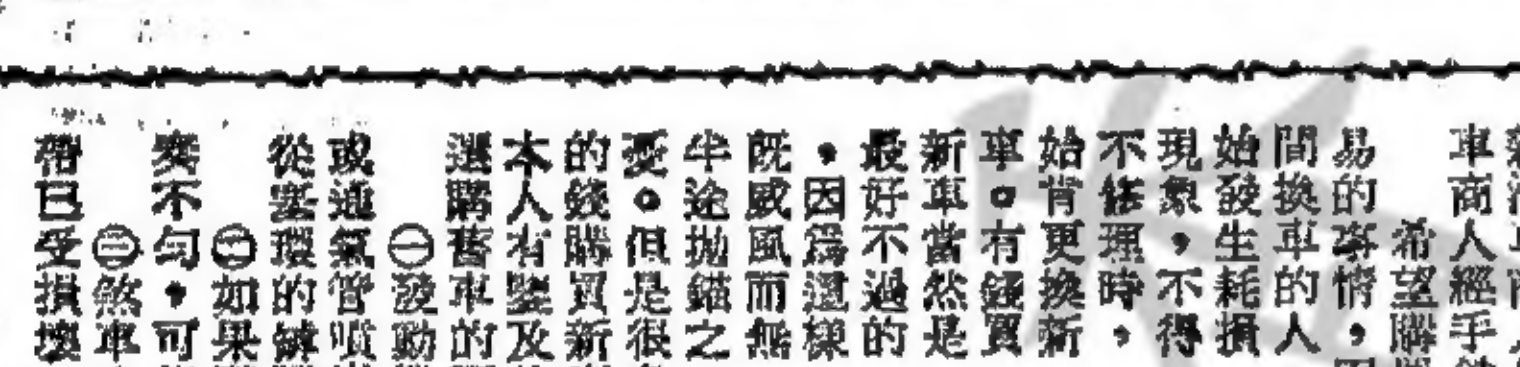 車商人經手
希望購
易的事情，
間換車的人
始發生耗損
現象，不得
不修理時，
始肯更換新
車。有錢買
新車當然是
最好不過的
，因爲這樣
既威風而無
半途拋錨之
憂。但是很
的錢購買新
本人有鑒及
選購舊車的
㊀發動
或通氣管噴
從塞環的罅
㊁如果
奏不勻，可
㊂煞車
帶已受損壞